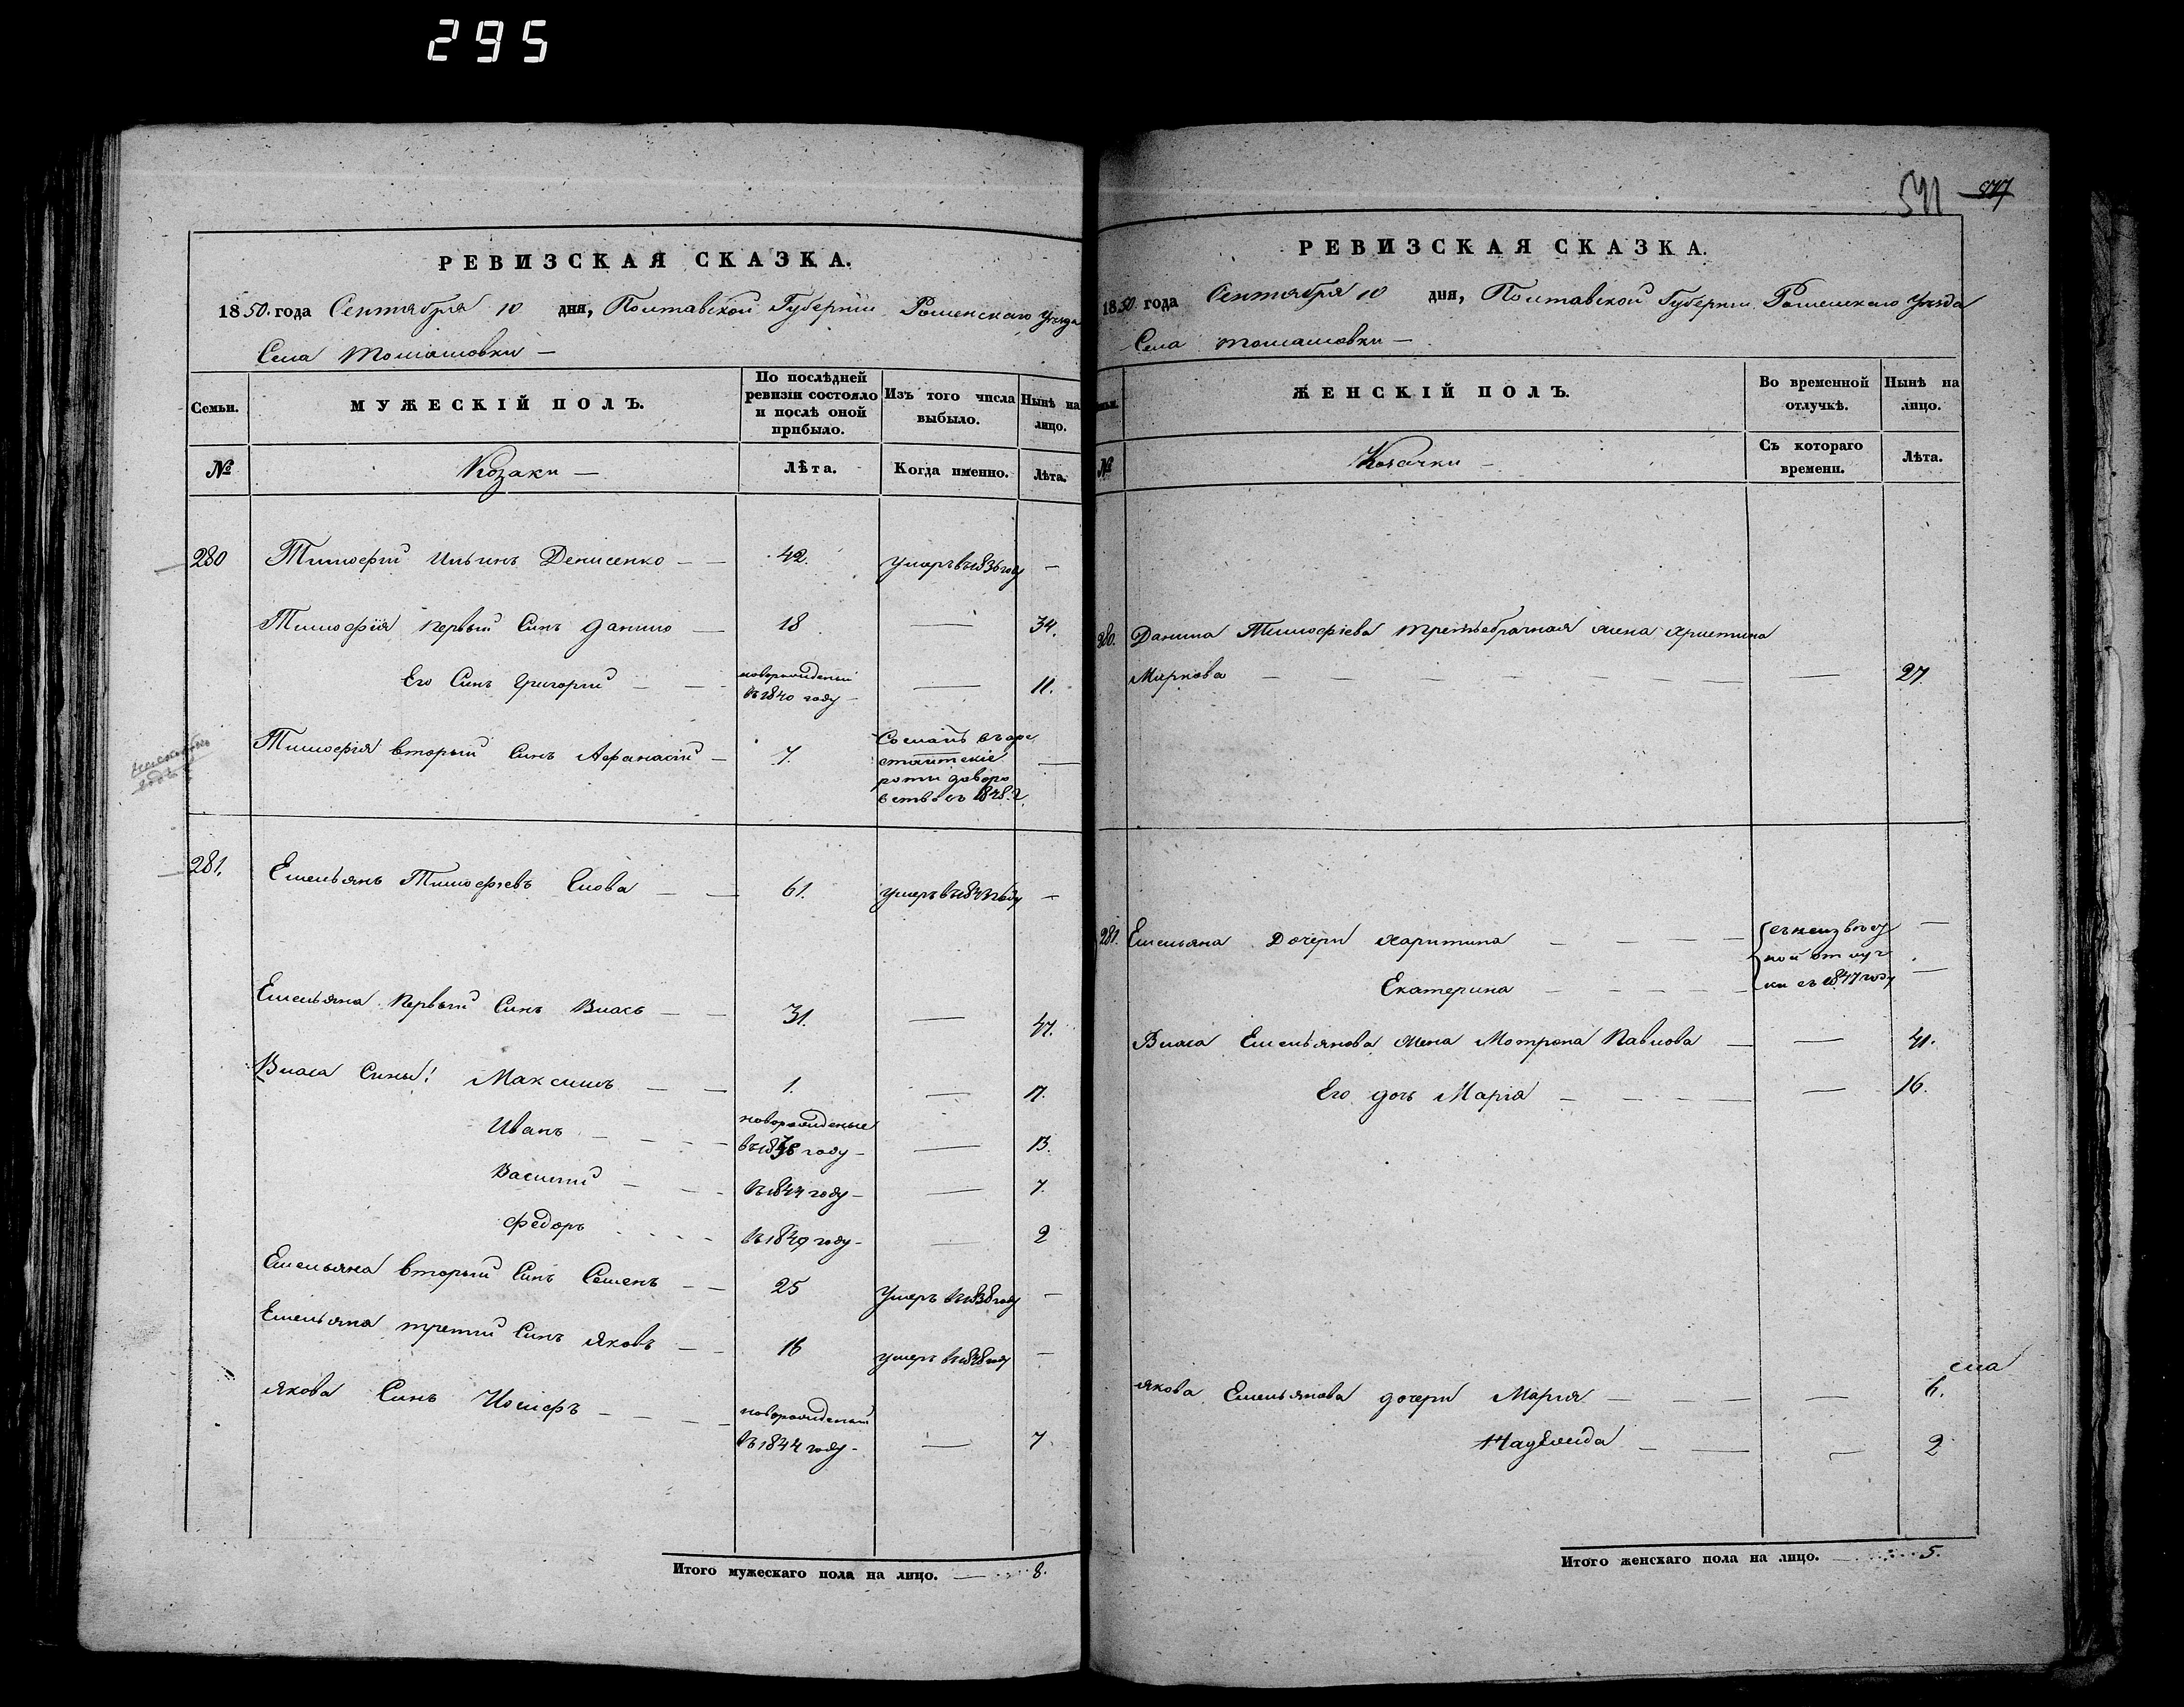 295
541 877
РЕВИЗСКАЯ СКАЗКА.
1850. года Сентября 10 дня, Полтавской Губерніи Роменскаго Уѣзда
Села Томашовки —
Семьи. МУЖЕСКІЙ ПОЛЪ. По послѣдней ревизіи состояло и послѣ оной прибыло. Изъ того числа выбыло. Нынѣ на лицо.
№ Козаки — Лѣта. Когда именно. Лѣта.
280 Тимофій Ильинъ Денисенко — — 42. умеръ въ 1836 году —
Тимофія первый Синъ Данило — 18 — 34.
Его Синъ Григорій — — новорожденый
въ 1840 году — — 11.
Тимофія вторый Синъ Афанасій — 7. Сосланъ въ аре
стантскіе —
роти
въ 1848. г.
281. Емельянъ Тимофѣевъ Слова — — 61. умеръ въ году —
Емельяна Первый Синъ Власъ — — 31. — 47.
Власа Сины: Максимъ — — 1. — 17.
Иванъ — новорожденые
въ 1838 году — — 13.
Василій — въ 1844 году — — 7.
Федоръ въ 1849 году — — 2
Емельяна вторый Синъ Семенъ — — 25 умеръ въ 1838 году —
Емельяна третій Синъ Яковъ — — 16 умеръ въ 1848 году —
Якова Синъ Иосифъ — новорожденый
въ 1844 году — — 7.
Итого мужескаго пола на лицо. — 8.
РЕВИЗСКАЯ СКАЗКА.
1850 года Сентября 10 дня, Полтавской Губерніи Роменскаго Уѣзда
Села Томашовки —
Семьи. ЖЕНСКІЙ ПОЛЪ. Во временной отлучкѣ. Нынѣ на лицо.
№ Козачки — Съ котораго времени. Лѣта.
280. Данила Тимофіева третьебрачная жена Христина
Маркова — — 27
281. Емельяна Дочери Харитина — въ неизвѣст —
ной отлуч
Екатерина — ки съ 1847 году —
Власа Емельянова жена Мотрона Павлова — — 41.
Его дочь Марія — — 16.
Якова Емельянова дочери Марія — — 6.
Надежда — — 2
Итого женскаго пола на лицо. — 5.